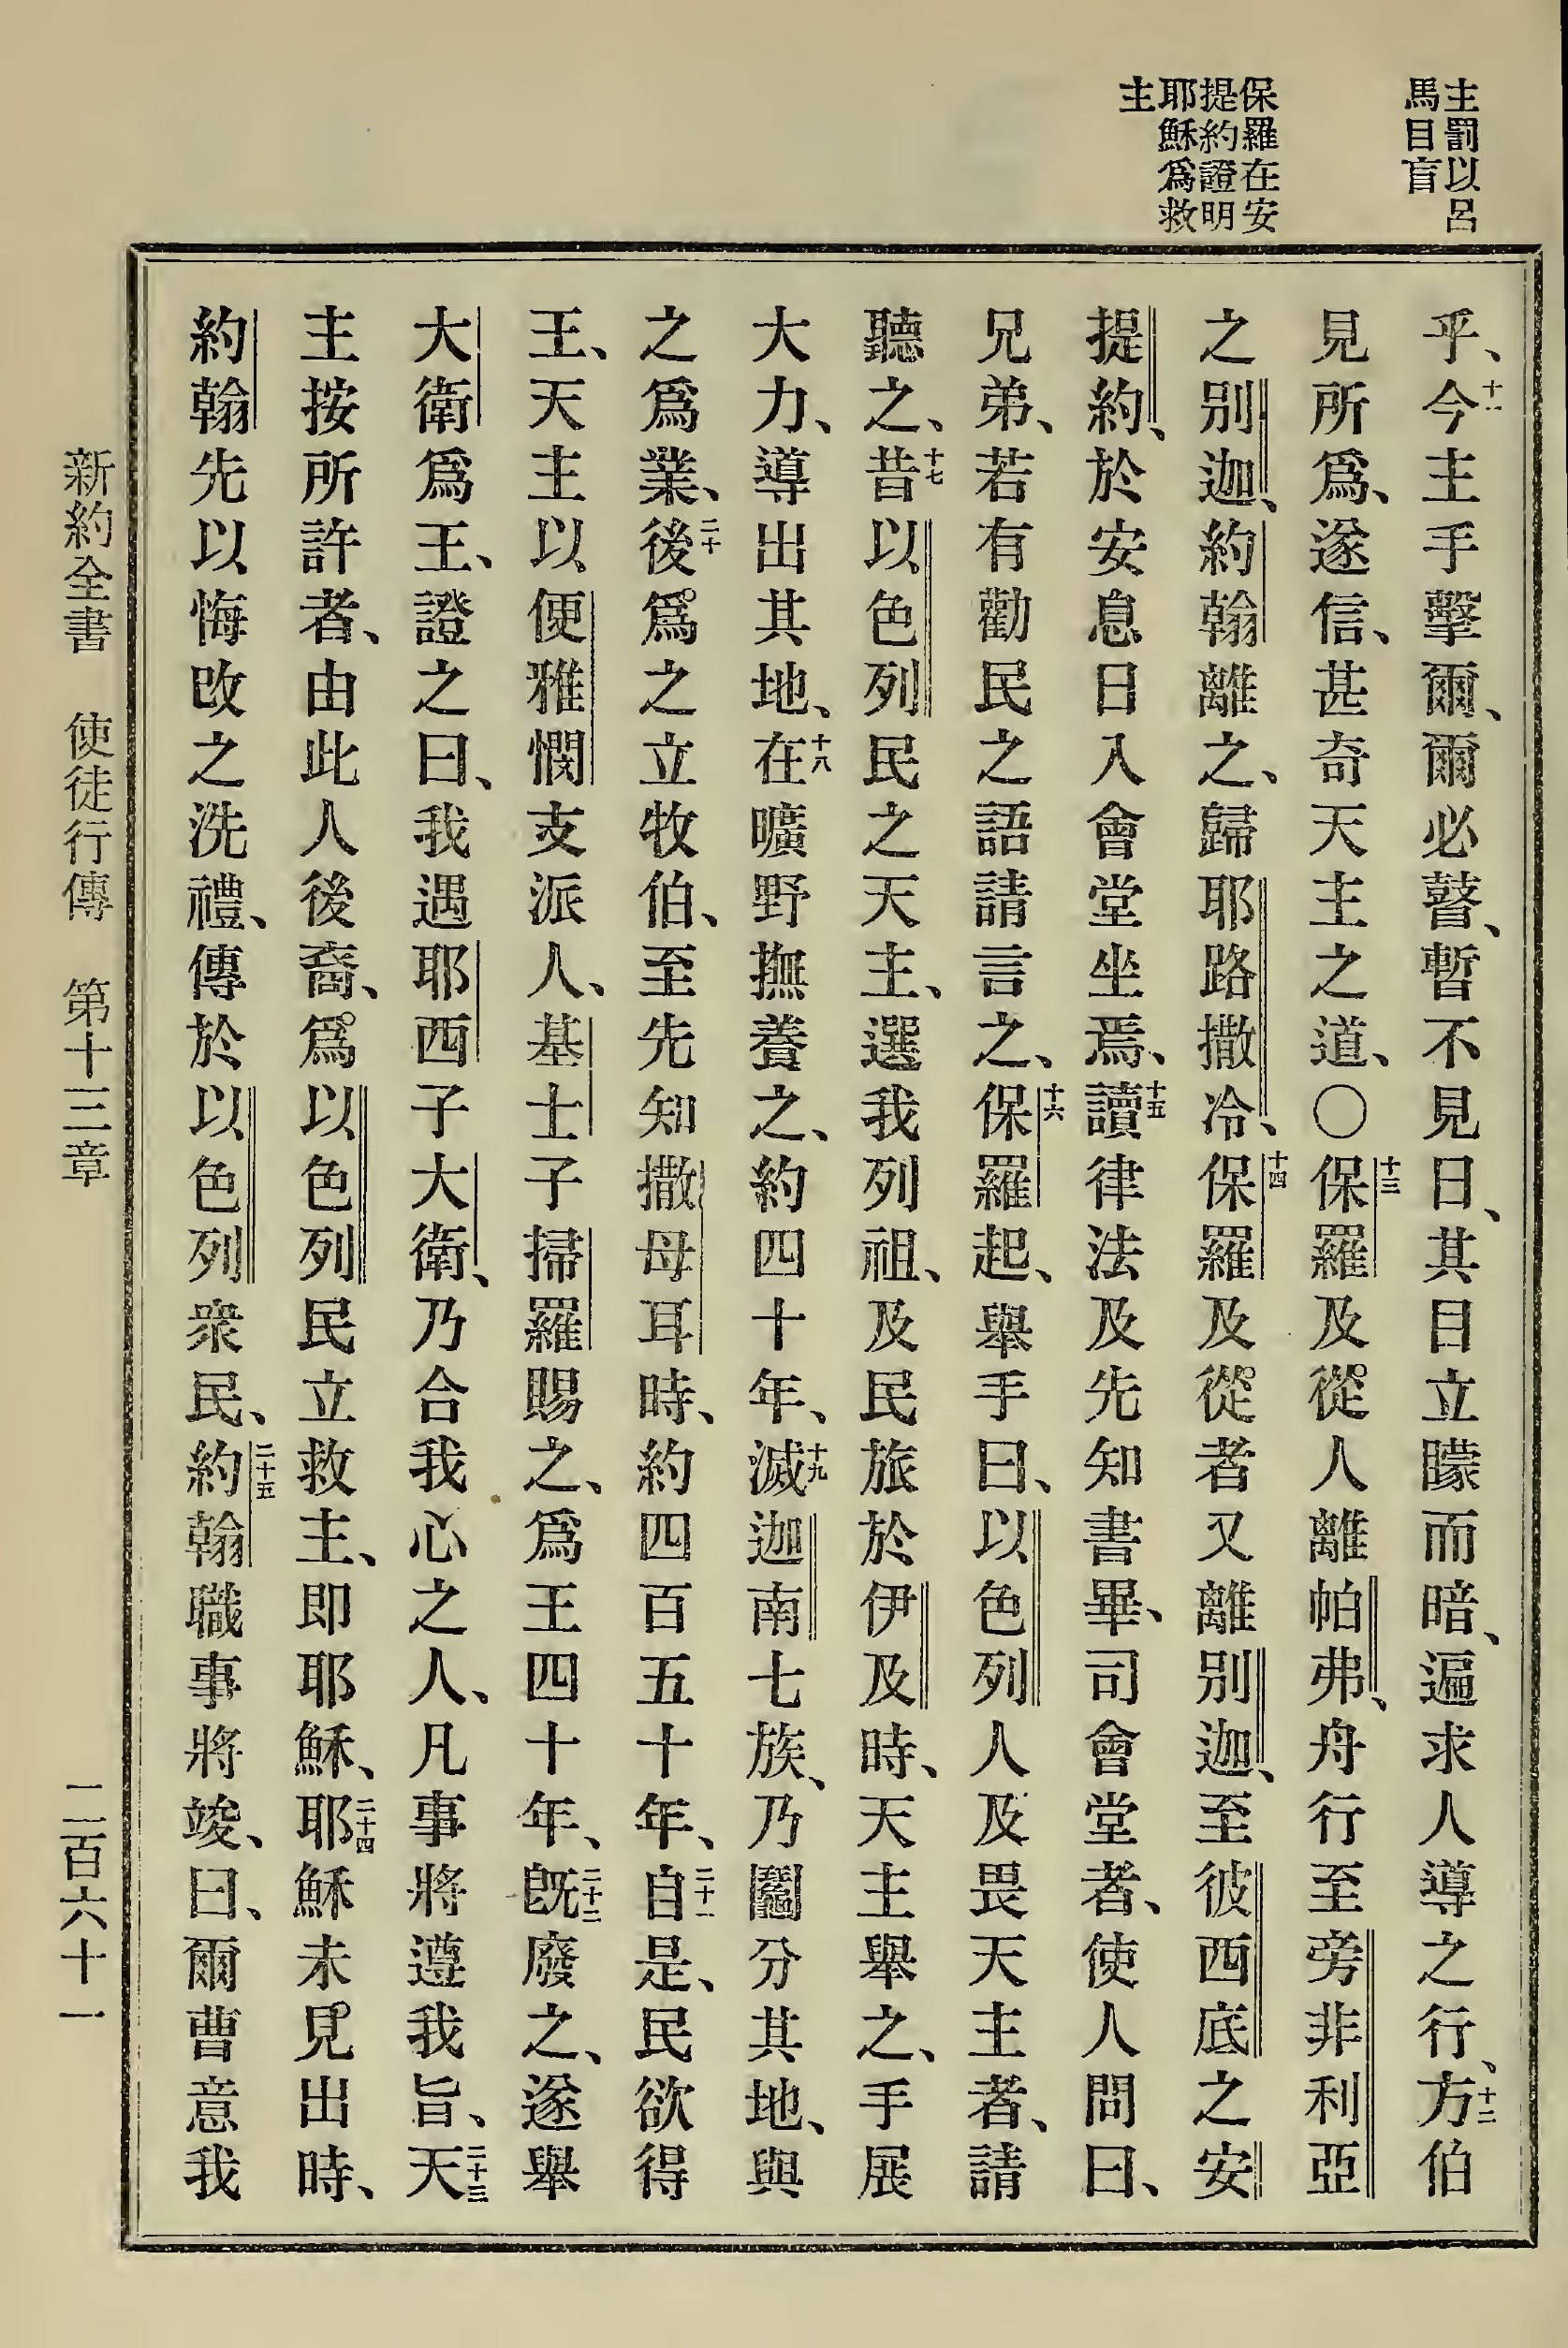 主罰以呂
馬目盲
保羅在安
提約證明
耶穌爲救
主
乎、十一今主手擊爾、爾必瞽、暫不見日、其目立矇而暗、遍求人導之行、十二方伯
見所爲、遂信、甚奇天主之道、〇十三保羅及從人離帕弗、舟行至旁非利亞
之別迦、約翰離之、歸耶路撒冷、十四保羅及從者又離別迦、至彼西底之安
提約、於安息日入會堂坐焉、十五讀律法及先知書畢、司會堂者、使人問曰、
兄弟、若有勸民之語請言之、十六保羅起、舉手曰、以色列人及畏天主者、請
聽之、十七昔以色列民之天主、選我列祖、及民旅於伊及時、天主舉之、手展
大力、導出其地、十八在曠野撫養之、約四十年、十九滅迦南七族、乃鬮分其地、與
之爲業、二十後爲之立牧伯、至先知撒母耳時、約四百五十年、二十一自是、民欲得
王、天主以便雅憫支派人、基士子掃羅賜之、爲王四十年、二十二旣廢之、遂舉
大衛爲王、證之曰、我遇耶西子大衛、乃合我心之人、凡事將遵我旨、二十三天
主按所許者、由此人後裔、爲以色列民立救主、即耶穌、二十四耶穌未見出時、
約翰先以悔改之洗禮、傳於以色列衆民、二十五約翰職事將竣、曰、爾曹意我
新約全書 使徒行傳 第十三章 二百六十一